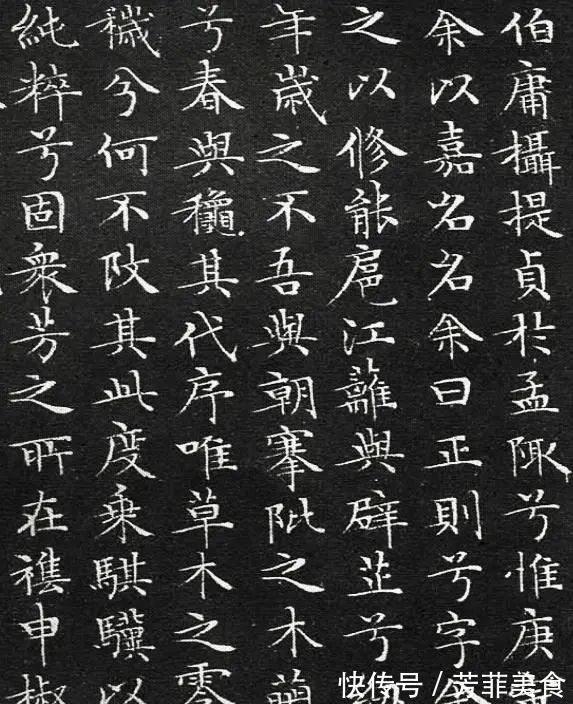 伯庸攝提貞於孟陬兮惟庚
余以嘉名名余曰正則兮字余
之以修能扈江蘺與辟芷兮
年歲之不吾與朝搴阰之木
兮春與龝其代序唯草木之零
穢兮何不改其此度乘騏驥以
純粹兮固衆芳之所在襍申椒
快传号 / 芳菲美食